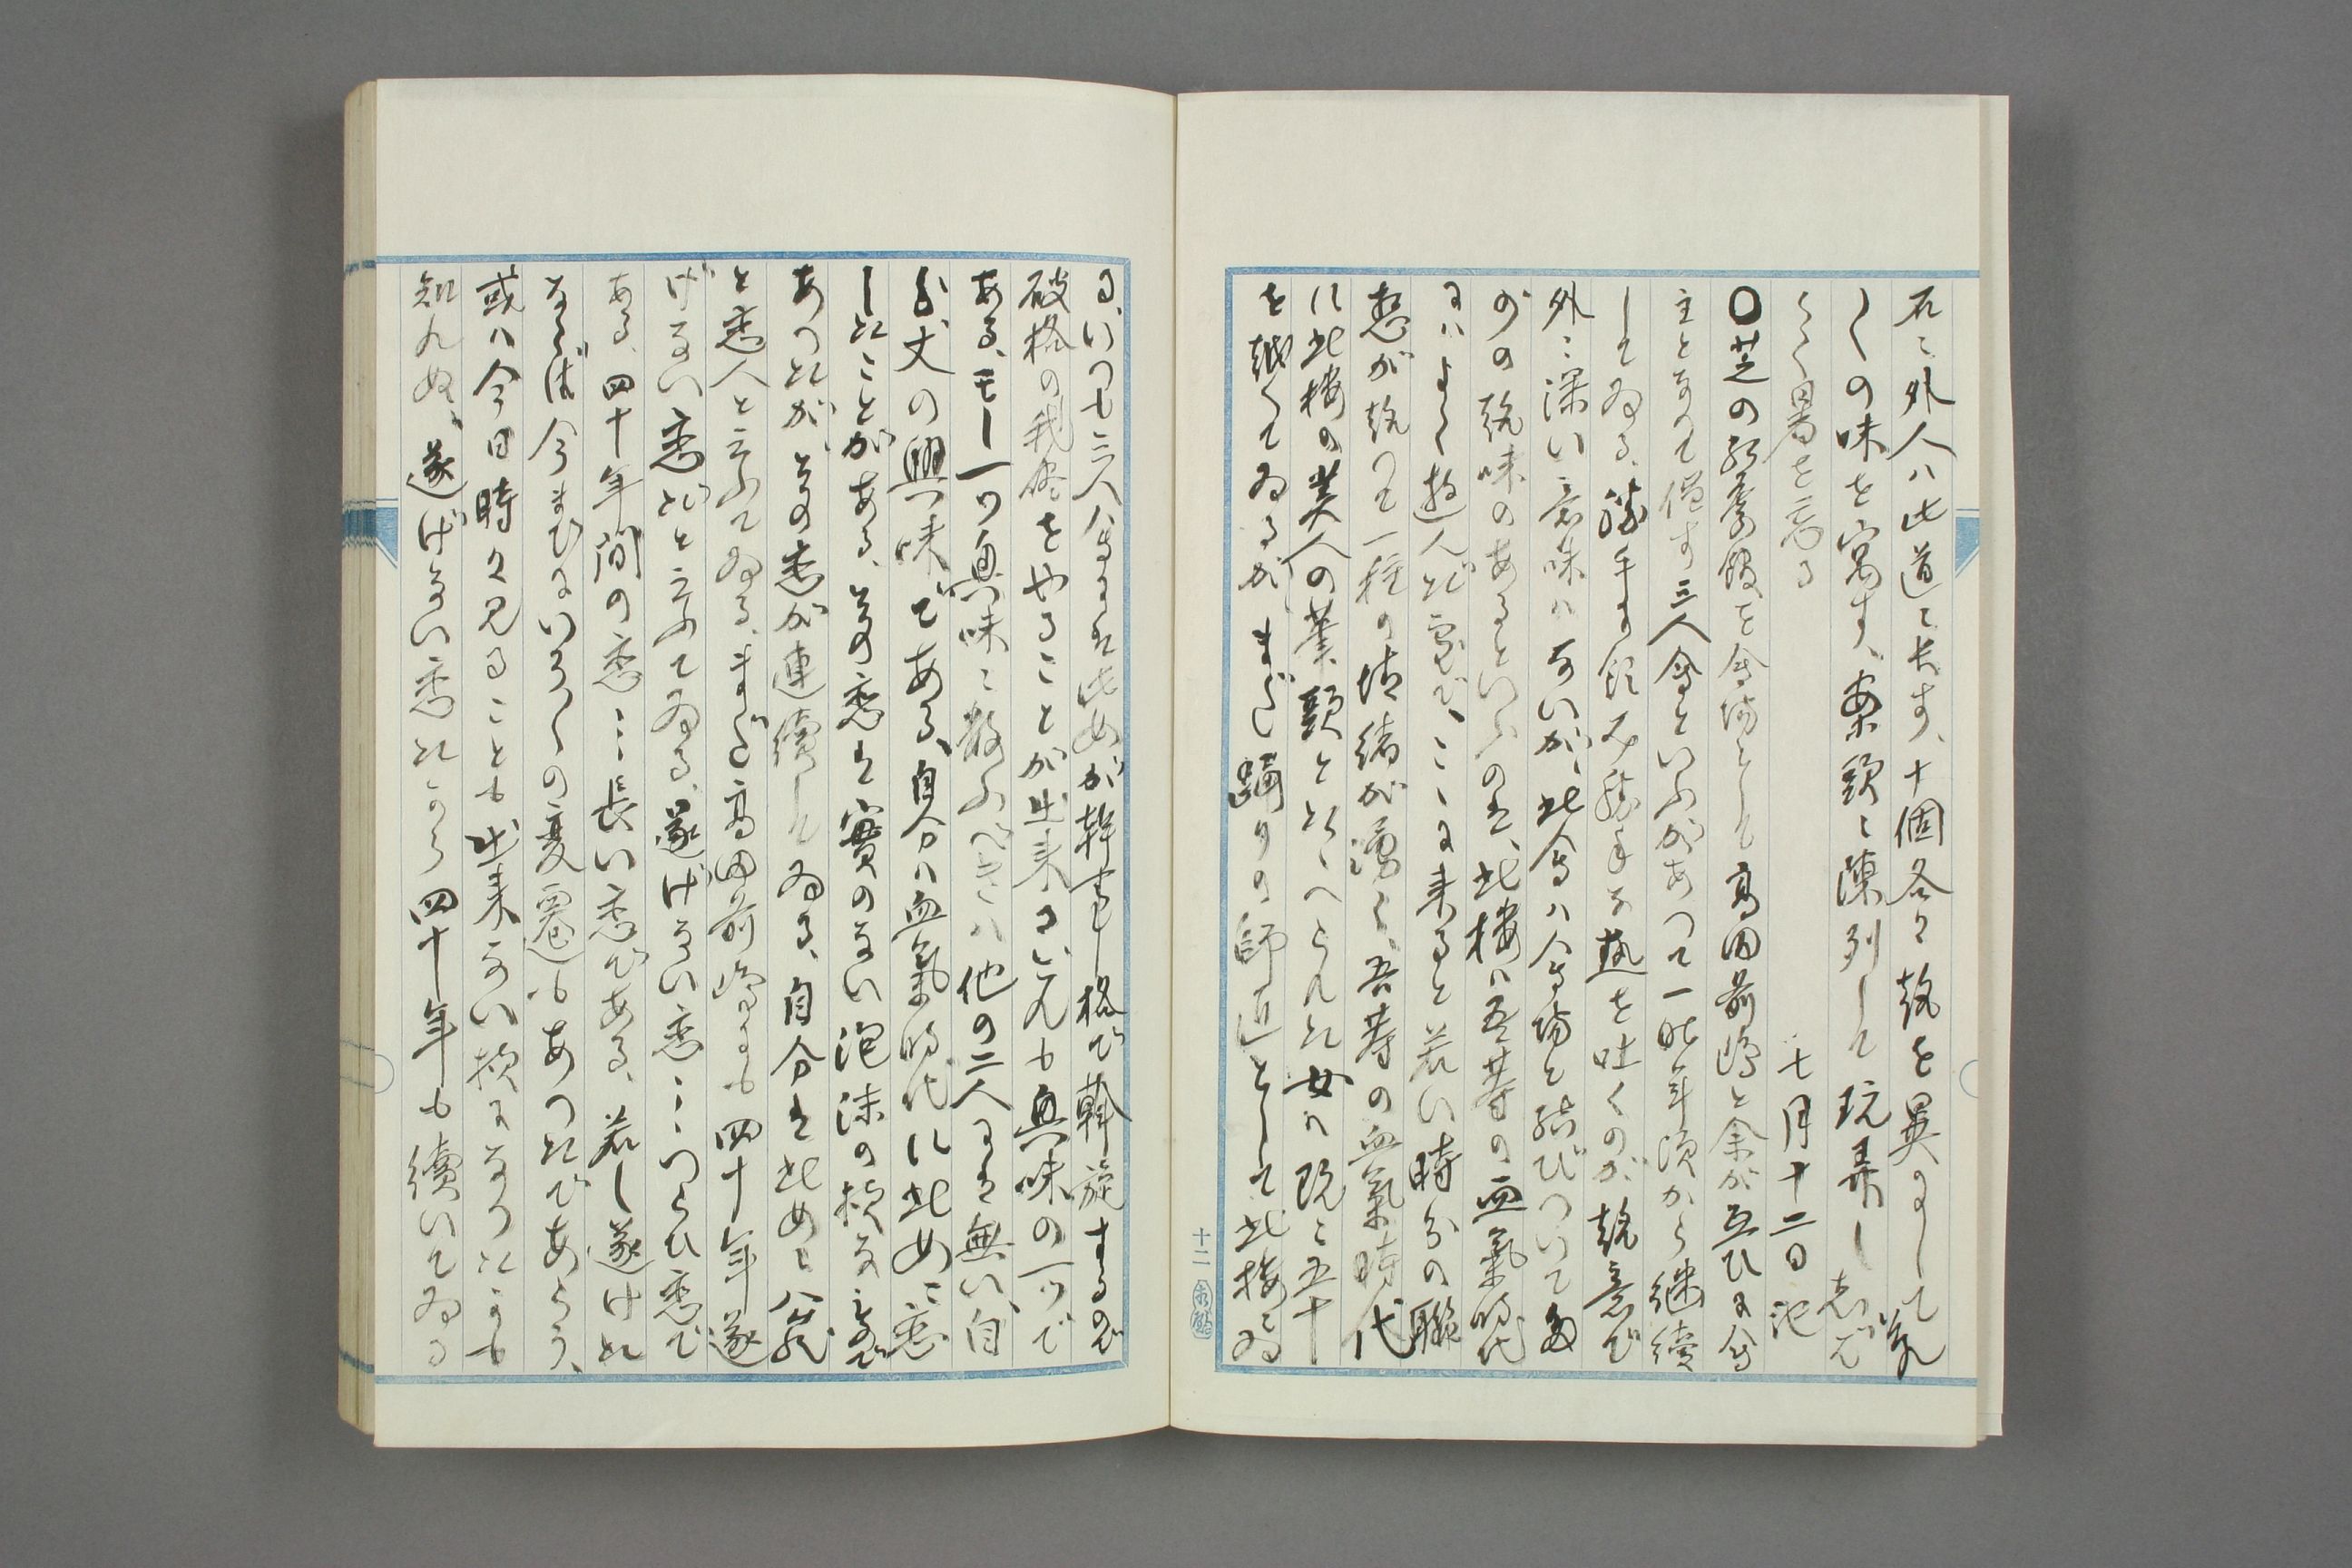 石に外人ハ此道に長ず、十個各々趣を異にして寔
しくの味を寓す、案頭に陳列して玩弄し志ば
らく暑を忘る
七月十二日記
〇芝の紅葉館を会場として高田前嶋と余が互ひに会
主となりて催す三人会といふがあつて一昨年頃から継続
してゐる、勝手な飲み勝手な熱を吐くのが趣意で
外に深い意味ハないが、此会ハ会場と結びついて多
少の趣味のあるといふのは、此楼ハ吾輩の血氣時代
にハよく遊んだ家で、こゝに来ると若い時分の聯
想が起つて一種の情緒が湧く、吾輩の血氣時代
に此楼の美人の筆頭と以はへられた女ハ既に五十
を越してゐるが まだ踊りの師匠として此楼にゐ
る、いつも三人会には此女が幹事格で斡旋するので
破格の我儘をやることが出来る、これも興味の一ツで
ある、モー一ツ興味に数ふべきハ他の二人には無い、自
分丈の興味である、自分ハ血氣時代に此女に恋
したことがある、其の恋は實のない泡沫の様な恋で
あつたが、其の恋が連續してゐる、自分は此女と
と恋人と云ふてゐる、まだ高田前嶋にも四十年遂
げない恋だと云ふてゐる、遂げない恋…つらひ恋で
ある、四十年間の恋…長い恋である、若し遂げた
ならば今までにいろくの変遷もあつたであらう、
或ハ今日時々見ることも出来ない様になつたかも
知れぬ、遂げない恋だから四十年も續いてゐる
十二